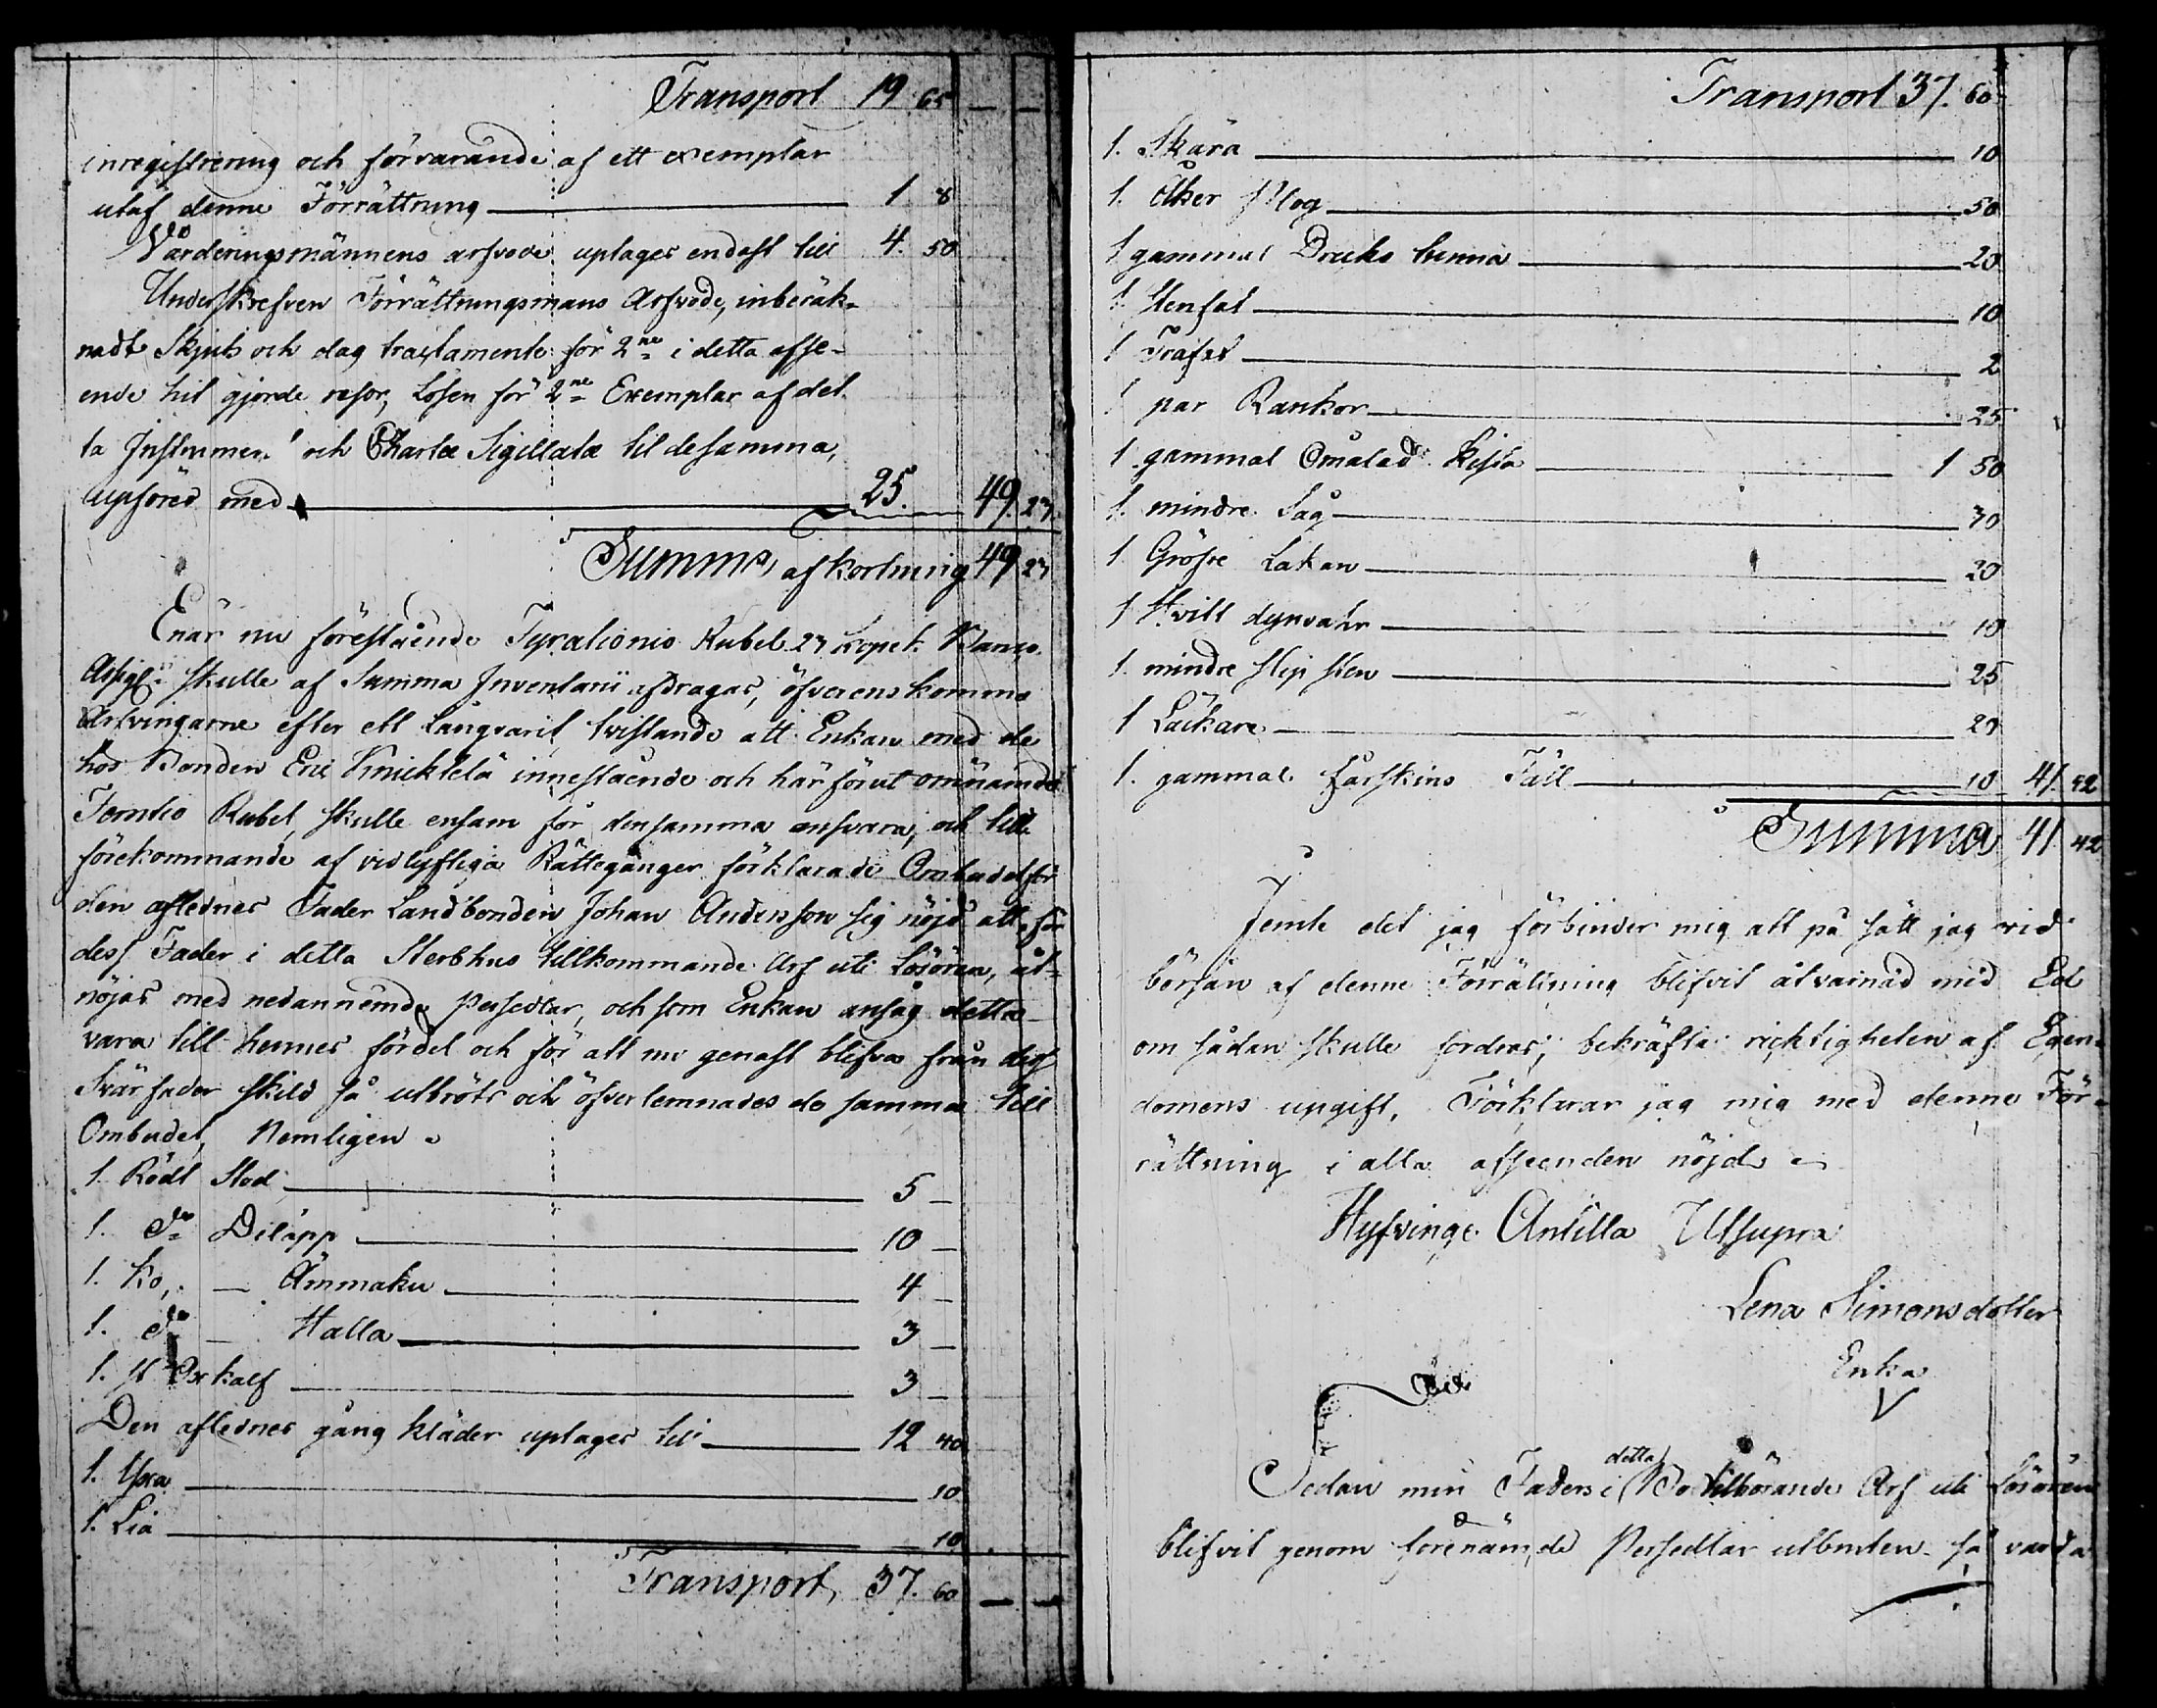 Transport 19 65 — —
inregistrering och förvarande af ett exemplar
utaf denne Förrättning — 1 8
Värderingsmännens arfvode uptages endast till 4. 50
Underskrefven Förrättningsmans Arfvode, inberäk-
nadt Skjuts och dag tractamente för 2ne i detta afse-
ende hit gjorde resor, Lösen för 2ne Exemplar af det-
ta Instrument och Charta Sigillata til desamma,
upföres med — 25. 49. 23
Summa afkortning 49 23
Enär nu förestående Fyrationio Rubel 23 Kopek Banco
Assig: skulle af Summa Inventarii afdragas, öfverenskommo
Arfvingarne efter ett långvarit tvistande att Enkan med de
hos Bonden Eric Knicktelä innestående och här förut omnämde
Femtio Rubel, skulle ensam för densamma ansvara, och till
förekommande af vidlyftiga Rättegånger förklarade Ombudet för
den aflednes Fader Landbonden Johan Andersson sig nöjd att för
dess Fader i detta Sterbhus tillkommande Arf uti Lösören, åt-
nöjas med nedannemde Persedlar, och som Enkan ansåg detta
vara till hennes fördel och för att nu genast blifva från dess
Svärfader skild så utbröts och öfverlemnades de samma till
Ombudet, Nemligen
1. Rödt Stod — 5 —
1. do — 10 —
1. Ko, — Ämmaku — 4 —
1. do — Halla — 3 —
1. st Oxkalf — 3 —
Den aflednes gång kläder uptages till — 12 40
1. Yxa — 10
1. Lia — 10
Transport, 37. 60 — —
Transport 37. 60
1. Skära — 10
1. Åker Plog — 50
1 gammal Dricks tunna — 20
1 Stenfat — 10
1 Träfat — 2
1 par Rankor — 25
1 gammal Omålad Kista — 1 50
1. mindre Såg — 30
1 Gröfre Lakan — 20
1 Hvitt dynvahr — 10
1. mindre slip sten — 25
1 — 20
1. gammal fårskins Fäll — 10 41. 42
Summa 41 42
Jemte det jag förbinder mig att på sätt jag vid
början af denne Förrättning blifvit åtvarnad med Ed
om sådan skulle fordras, bekräfta ricktigheten af Egen-
domens upgift, Förklarar jag mig med denne För-
rättning i alla afseenden nöjd
Hyfvinge Antilla Utsupra
Lena Simonsdotter
Enka
Sedan min Faders i detta Bo tillhörande Arf uti Lösören
blifvit genom förenämde Persedlar utbruten så varda